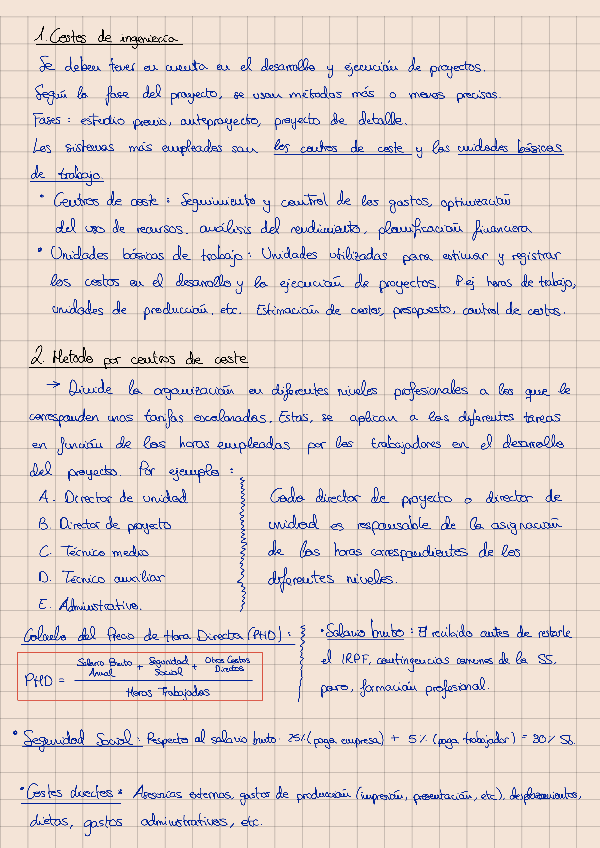 1. Costes de ingeniería
Se deben tener en cuenta en el desarrollo y ejecución de proyectos.
Según la fase del proyecto, se usan métodos más o menos precisos.
Fases: estudio previo, anteproyecto, proyecto de detalle.
Los sistemas más empleados son los centros de coste y las unidades básicas
de trabajo.
• Centros de coste: Seguimiento y control de los gastos, optimización
del uso de recursos. análisis del rendimiento, planificación financiera
• Unidades básicas de trabajo: Unidades utilizadas para estimar y registrar
los costos en el desarrollo y la ejecución de proyectos. P.ej horas de trabajo,
unidades de producción, etc. Estimación de costes, presupuesto, control de costos.
2. Metodo por centros de coste
→ Divide la organización en diferentes niveles profesionales a los que le
corresponden unas tarifas escalonadas. Estas, se aplican a las diferentes tareas
en función de las horas empleadas por los trabajadores en el desarrollo
del proyecto. Por ejemplo:
A. Director de unidad
B. Director de proyecto
C. Técnico medio
D. Técnico auxiliar
E. Administrativo.
Cada director de proyecto o director de
unidad es responsable de la asignación
de las horas correspondientes de los
diferentes niveles.
Calculo del Precio de Hora Directa (PHD):
PHD = Salario Bruto Anual + Seguridad Social + Otros Costes Directos
Horas Trabajadas
• Salario bruto: El recibido antes de restarle
el IRPF, contingencias comunes de la SS,
paro, formación profesional.
• Seguridad Social: Respecto al salario bruto: 25% (paga empresa) + 5% (paga trabajador) = 30% SB.
• Costes directos: Asesorías externas, gastos de producción (impresión, presentación, etc), desplazamientos,
dietas, gastos administrativos, etc.